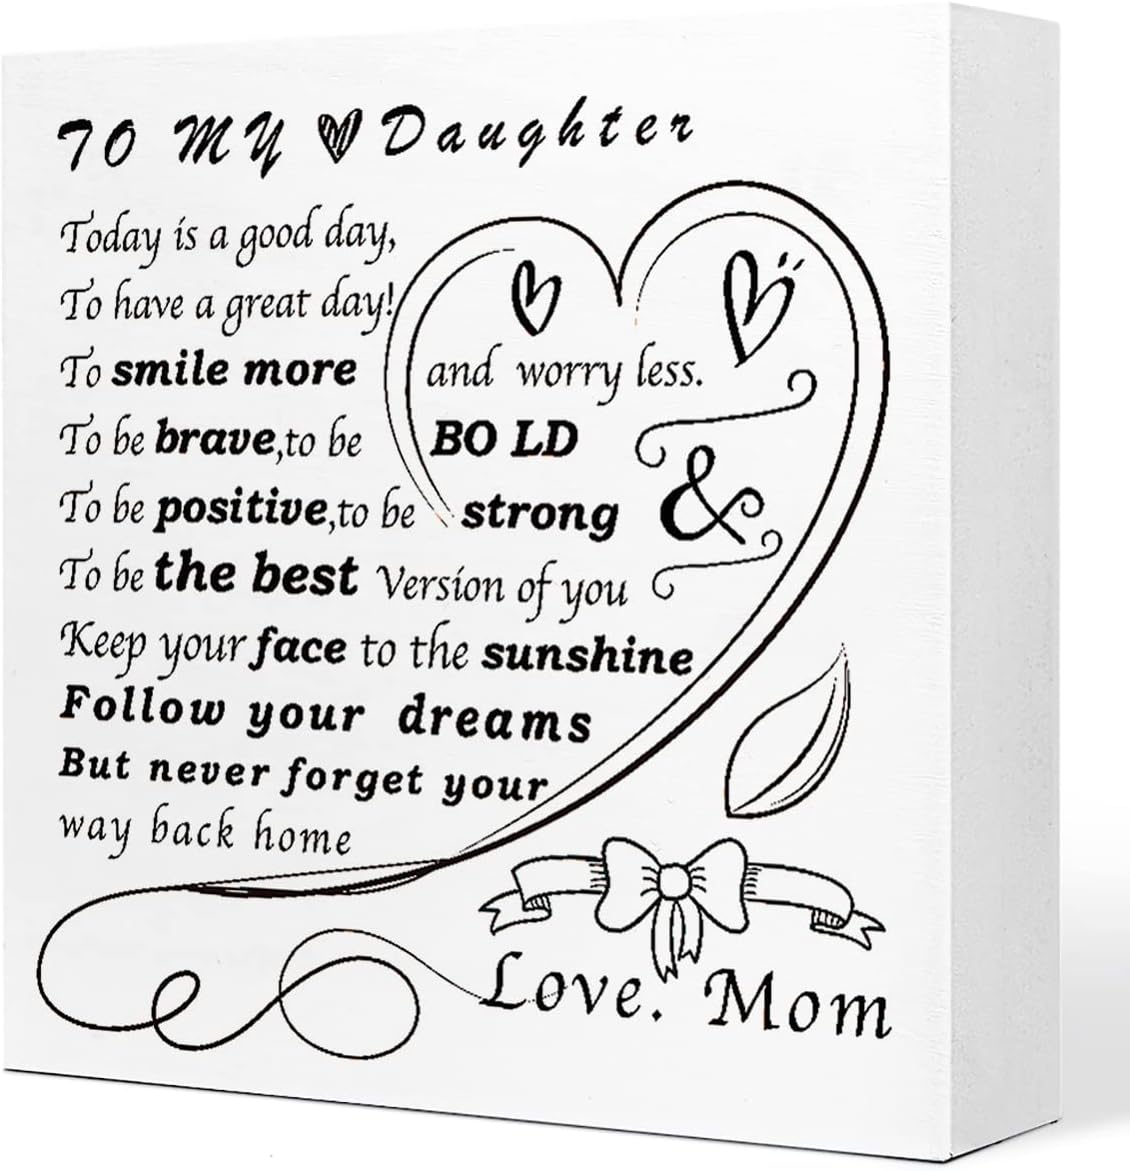 TO MY Daughter
Today is a good day,
To have a great day!
To smile more and worry less.
To be brave,to be BO LD
To be positive,to be strong &
To be the best Version of you
Keep your face to the sunshine
Follow your dreams
But never forget your
way back home
Love. Mom